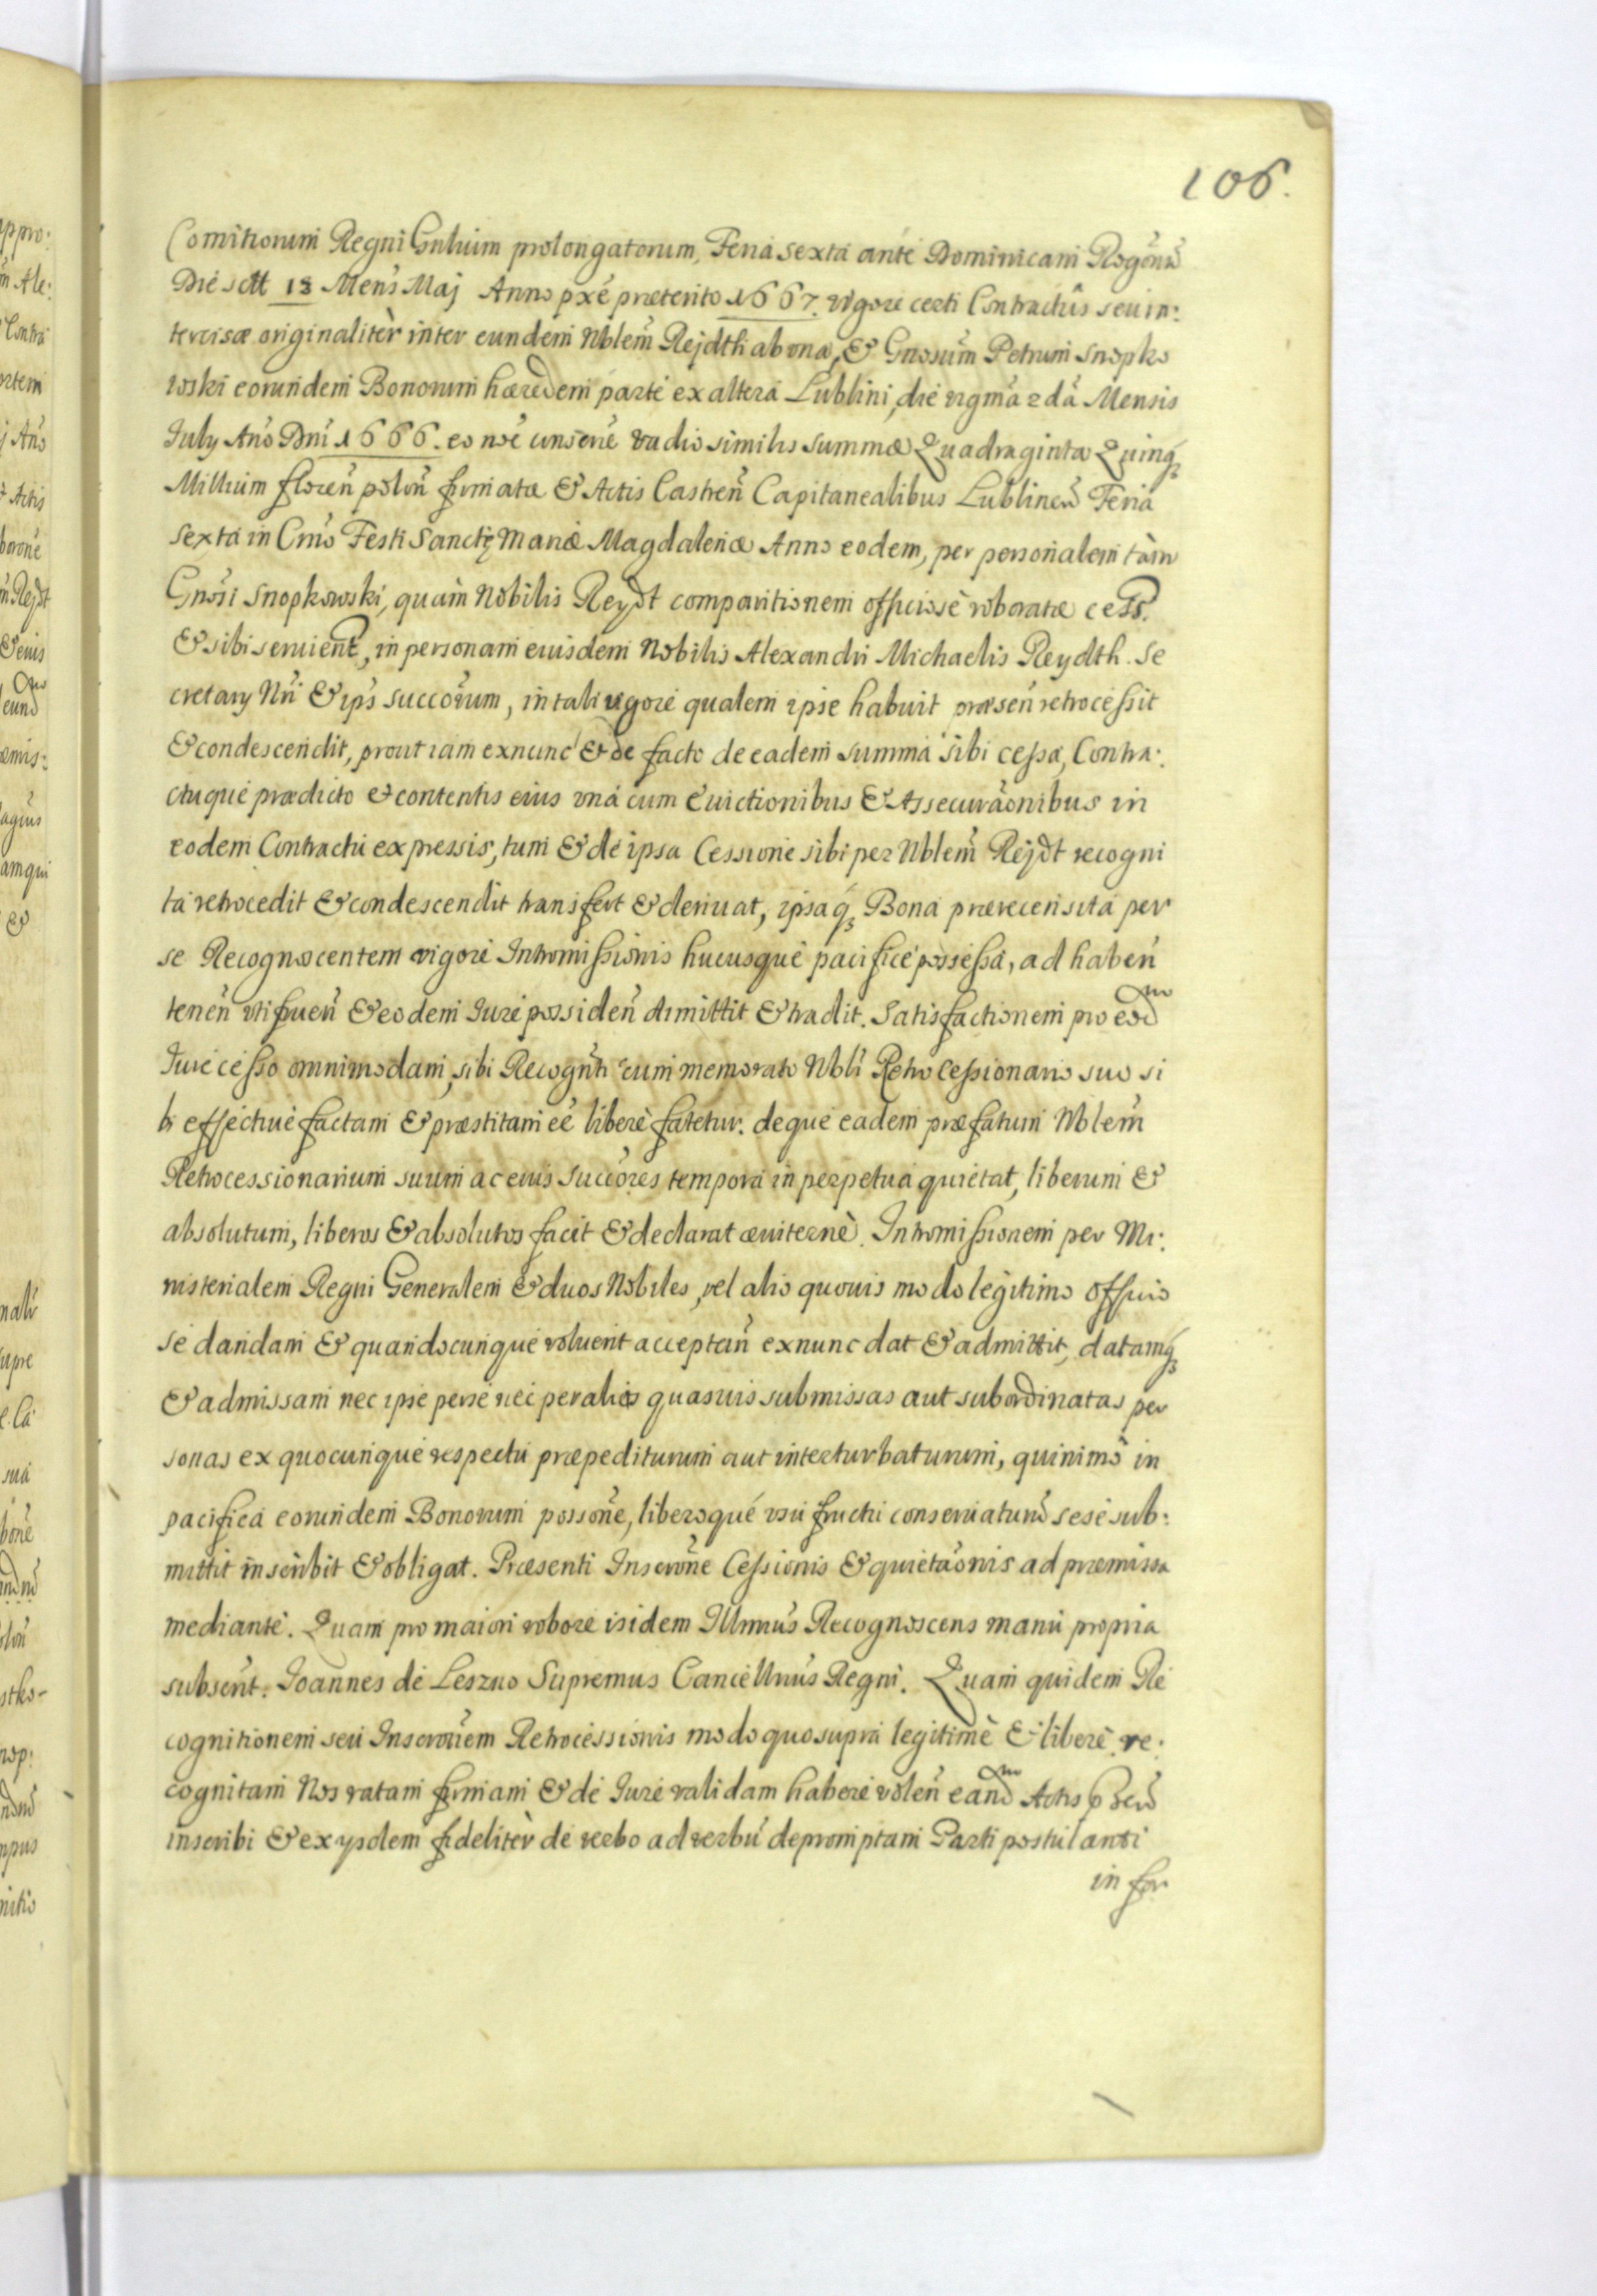 106.
Comitiorum Regni Gnlium prolongatorum, Feria sexta ante Dominicam Rogõnũ
Die sctt 13 Mens̃ Maj Anno pxé præterito 1667. vigore certi Contractûs seu in:
tercisæ originalitèr inter eundem Nblem̃ Rejdth ab vna, & Gnosum̃ Petrum Snopko
wski eorundem Bonorum hæredem parte ex altera Lublini, die vigma̋ 2da̋ Mensis
July Ano̊ Dni̋ 1666. eo noe̋ conscr̃e vadio similis summæ Quadraginta Quinq́ꝫ
Millium floren̋ polon̋ firmatæ & Actis Castren̋ Capitanealibus Lublinen̋ Feria
sexta in Crnő Festi Sanctæ Mariæ Magdalenæ Anno eodem, per personalem tàm
Gnosi̋ Snopkowski, quàm Nobilis Reydt comparitionem officiosè roboratæ cess.
& sibi seruient, in personam eiusdem Nobilis Alexandri Michaelis Reydth. Se
cretary Nri̋ & ips̋ succorum̋, in tali vigore qualem ipse habuit præsen̋ retrocessit
& condescendit, prout iam exnunc & de facto de eadem summa sibi cessa, Contra:
ctuque prædicto & contentis eius vna cum Euictionibus & Assecuraőnibus in
eodem Contractu expressis, tum & de ipsa Cessione sibi per Nblem̋ Rejdt recogni
ta retrocedit & condescendit transfert & deriuat, ipsaq́ꝫ Bona prærecensita per
se Recognoscentem vigore Intromissionis hucusque pacificè possessa, ad haben̋
tenen̋ vtifruen̋ & eodem Iure possiden̋ dimittit & tradit. Satisfactionem pro eod̃m
Iure cesso omnimodam, sibi Recogn̋ti cum memorato Nbli̋ Retrocessionario suo si
bi effectiue factam & præstitam eë liberè fatetur. deque eadem præfatum Nblem̋
Retrocessionarium suum ac eius Succo̊res tempora in perpetua quietat, liberum &
absolutum, liberos & absolutos facit & declarat æuiternè. Intromissionem per Mi:
nisterialem Regni Generalem & duos Nobiles, vel alio quouis modo legitimo officio
se dandam & quandocunque voluerit acceptan̋ exnunc dat & admittit, datamq́ꝫ
& admissam nec ipse per se nec per alias quasuis submissas aut subordinatas per
sonas ex quocunque respectu præpediturum aut interturbaturum, quinimò in
pacifica eorundem Bonorum posső̃ne, liberoque vsu fructu conseruaturũ sese sub:
mittit inscribit & obligat. Præsenti Inscrőne Cessionis & quietaőnis ad præmissa
mediante. Quam pro maiori robore isidem Illrmus̋ Recognoscens manu propria
subscrit̋. Ioannes de Leszno Supremus Cancellrius̋ Regni. Quam quidem Re
cognitionem seu Inscronem̋ Retrocessionis modo quo supra legitimè & liberè re:
cognitam Nos ratam firmam & de Iure validam habere volen̋ eand̃m Actis ꝓsen̋
inscribi & ex ysdem fidelitèr de verbo ad verbű depromptam Parti postulanti
in for